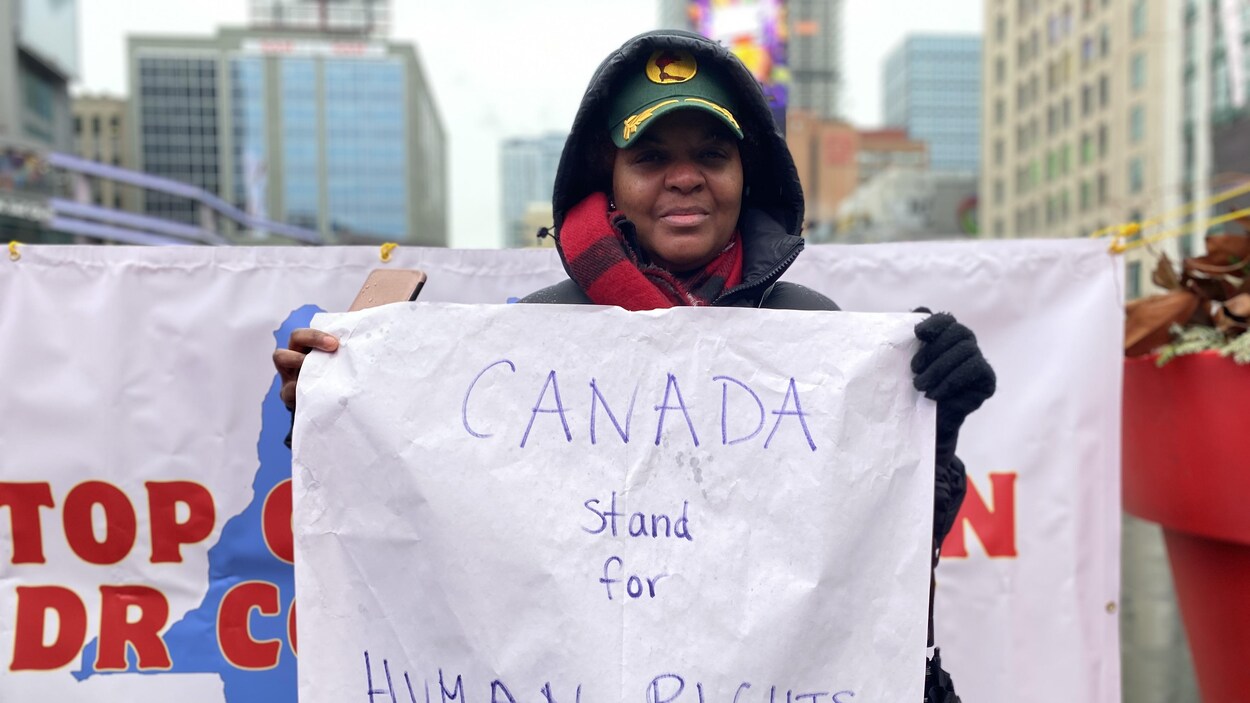 CANADA
Stand
for
HUMAN RIGHTS
TOP
DR